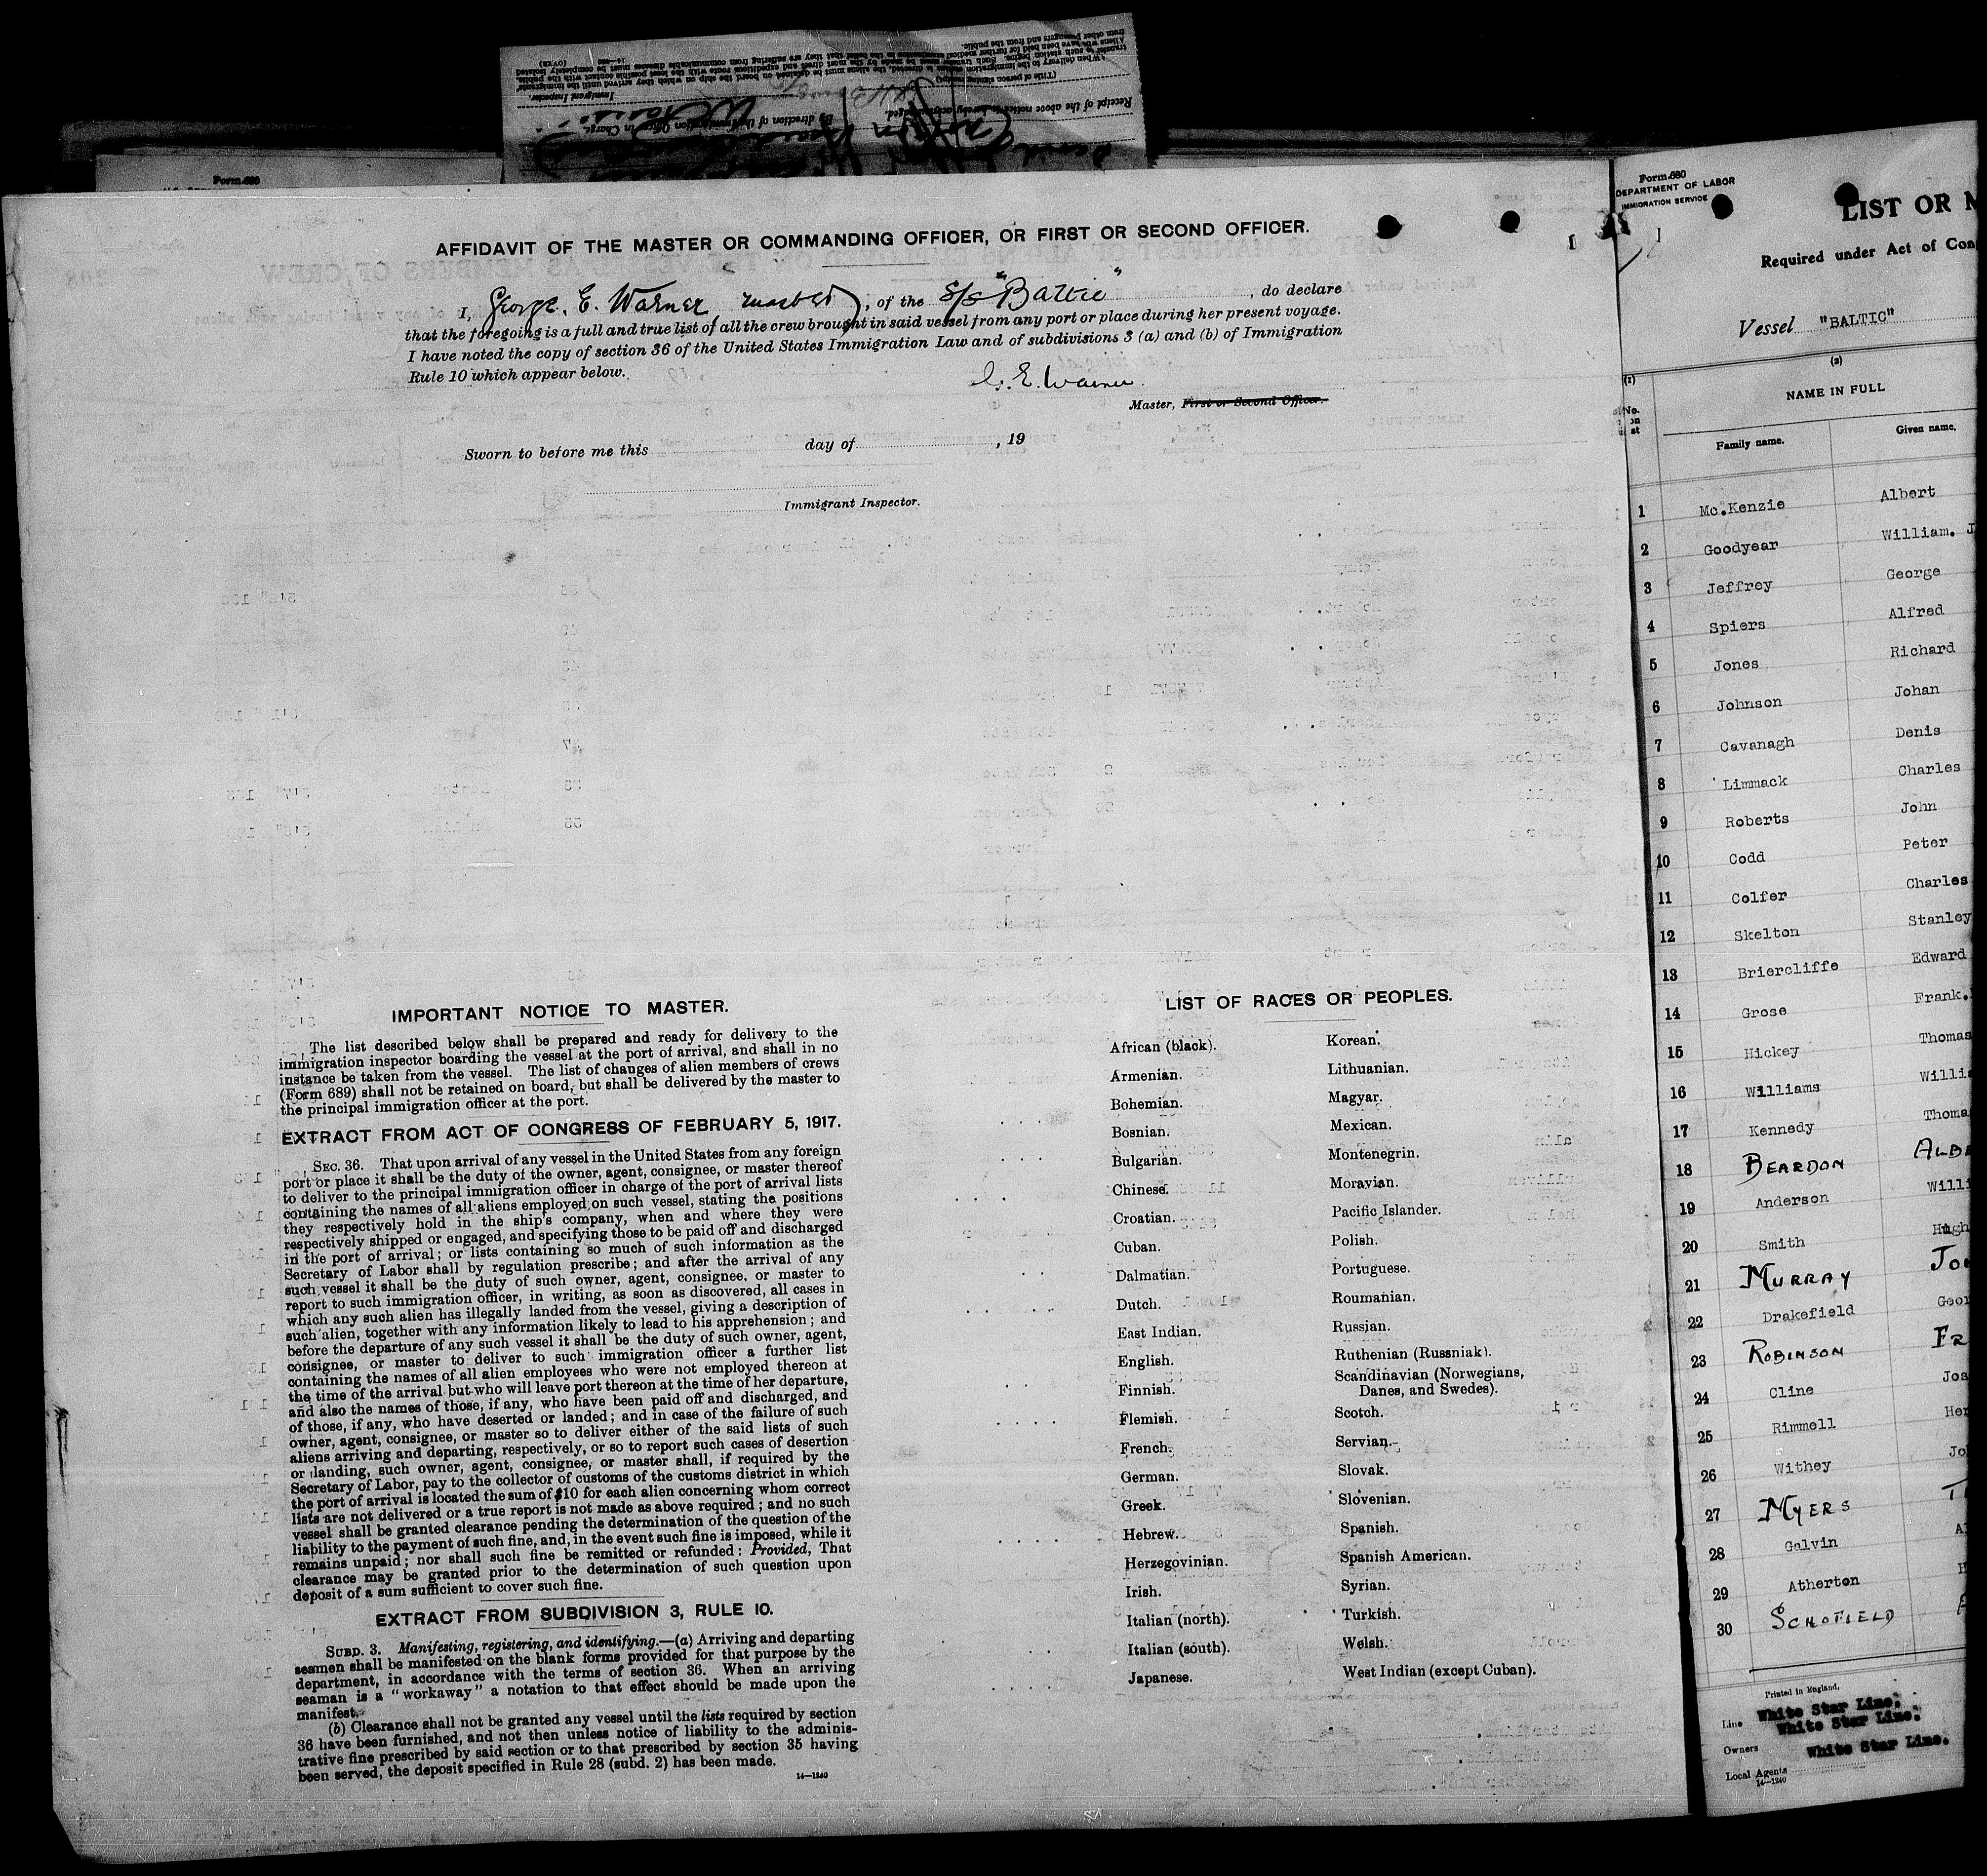 from other passengers and from the public.
Aliens who have been held for further medical examination in the belief that they are suffering from communicable diseases must be completely isolated
transfer to such station begins. Such transfer must be made by the most direct and expeditious route with the least possible contact with the public.
When delivery to the immigration station is directed, the aliens must be detained on board the ship on which they arrived until the immigrants'
(OVER)
(Title of person signing receipt)
Immigrant Inspector.
Receipt of the above notice is hereby acknowledged.
By direction of the Immigration Officer in Charge.
Form 680
AFFIDAVIT OF THE MASTER OR COMMANDING OFFICER, OR FIRST OR SECOND OFFICER.
I, George. E. Warner, master, of the S/S "Baltic", do declare
that the foregoing is a full and true list of all the crew brought in said vessel from any port or place during her present voyage.
I have noted the copy of section 36 of the United States Immigration Law and of subdivisions 3 (a) and (b) of Immigration
Rule 10 which appear below.
G. E. Warner
Master, First or Second Officer.
Sworn to before me this day of , 19
Immigrant Inspector.
IMPORTANT NOTICE TO MASTER.
The list described below shall be prepared and ready for delivery to the
immigration inspector boarding the vessel at the port of arrival, and shall in no
instance be taken from the vessel. The list of changes of alien members of crews
(Form 689) shall not be retained on board, but shall be delivered by the master to
the principal immigration officer at the port.
EXTRACT FROM ACT OF CONGRESS OF FEBRUARY 5, 1917.
SEC. 36. That upon arrival of any vessel in the United States from any foreign
port or place it shall be the duty of the owner, agent, consignee, or master thereof
to deliver to the principal immigration officer in charge of the port of arrival lists
containing the names of all aliens employed on such vessel, stating the positions
they respectively hold in the ship's company, when and where they were
respectively shipped or engaged, and specifying those to be paid off and discharged
in the port of arrival; or lists containing so much of such information as the
Secretary of Labor shall by regulation prescribe; and after the arrival of any
such vessel it shall be the duty of such owner, agent, consignee, or master to
report to such immigration officer, in writing, as soon as discovered, all cases in
which any such alien has illegally landed from the vessel, giving a description of
such alien, together with any information likely to lead to his apprehension; and
before the departure of any such vessel it shall be the duty of such owner, agent,
consignee, or master to deliver to such immigration officer a further list
containing the names of all alien employees who were not employed thereon at
the time of the arrival but who will leave port thereon at the time of her departure,
and also the names of those, if any, who have been paid off and discharged, and
of those, if any, who have deserted or landed; and in case of the failure of such
owner, agent, consignee, or master so to deliver either of the said lists of such
aliens arriving and departing, respectively, or so to report such cases of desertion
or landing, such owner, agent, consignee, or master shall, if required by the
Secretary of Labor, pay to the collector of customs of the customs district in which
the port of arrival is located the sum of $10 for each alien concerning whom correct
lists are not delivered or a true report is not made as above required; and no such
vessel shall be granted clearance pending the determination of the question of the
liability to the payment of such fine, and, in the event such fine is imposed, while it
remains unpaid; nor shall such fine be remitted or refunded: Provided, That
clearance may be granted prior to the determination of such question upon
deposit of a sum sufficient to cover such fine.
EXTRACT FROM SUBDIVISION 3, RULE 10.
SUBD. 3. Manifesting, registering, and identifying.—(a) Arriving and departing
seamen shall be manifested on the blank forms provided for that purpose by the
department, in accordance with the terms of section 36. When an arriving
seaman is a "workaway" a notation to that effect should be made upon the
manifest.
(b) Clearance shall not be granted any vessel until the lists required by section
36 have been furnished, and not then unless notice of liability to the adminis-
trative fine prescribed by said section or to that prescribed by section 35 having
been served, the deposit specified in Rule 28 (subd. 2) has been made.
14—1240
LIST OF RACES OR PEOPLES.
African (black).
Armenian.
Bohemian.
Bosnian.
Bulgarian.
Chinese.
Croatian.
Cuban.
Dalmatian.
Dutch.
East Indian.
English.
Finnish.
Flemish.
French.
German.
Greek.
Hebrew.
Herzegovinian.
Irish.
Italian (north).
Italian (south).
Japanese.
Korean.
Lithuanian.
Magyar.
Mexican.
Montenegrin.
Moravian.
Pacific Islander.
Polish.
Portuguese.
Roumanian.
Russian.
Ruthenian (Russniak).
Scandinavian (Norwegians,
Danes, and Swedes).
Scotch.
Servian.
Slovak.
Slovenian.
Spanish.
Spanish American.
Syrian.
Turkish.
Welsh.
West Indian (except Cuban).
Form 680
DEPARTMENT OF LABOR
IMMIGRATION SERVICE
LIST OR M
Required under Act of Con
Vessel "BALTIC"
(1) (2)
No. on
NAME IN FULL
Family name. Given name.
1 Mc.Kenzie Albert
2 Goodyear William. J
3 Jeffrey George
4 Spiers Alfred
5 Jones Richard
6 Johnson Johan
7 Cavanagh Denis
8 Limmack Charles
9 Roberts John
10 Codd Peter
11 Colfer Charles
12 Skelton Stanley
13 Briercliffe Edward
14 Grose Frank.
15 Hickey Thomas
16 Williams Willia
17 Kennedy Thoma
18 BEARDON ALBE
19 Anderson Willi
20 Smith Hugh
21 MURRAY JO
22 Drakefield Geor
23 ROBINSON FR
24 Cline Jos
25 Rimmell Her
26 Withey Jo
27 MYERS T
28 Galvin A
29 Atherton H
30 SCHOFIELD
Printed in England.
Line White Star Line.
Owners White Star Line.
Local Agents White Star Line.
14—1240